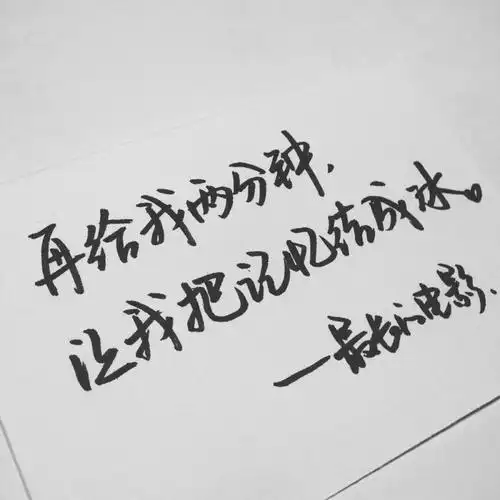 再给我两分钟.
让我把记忆结成冰。
—最长的电影.